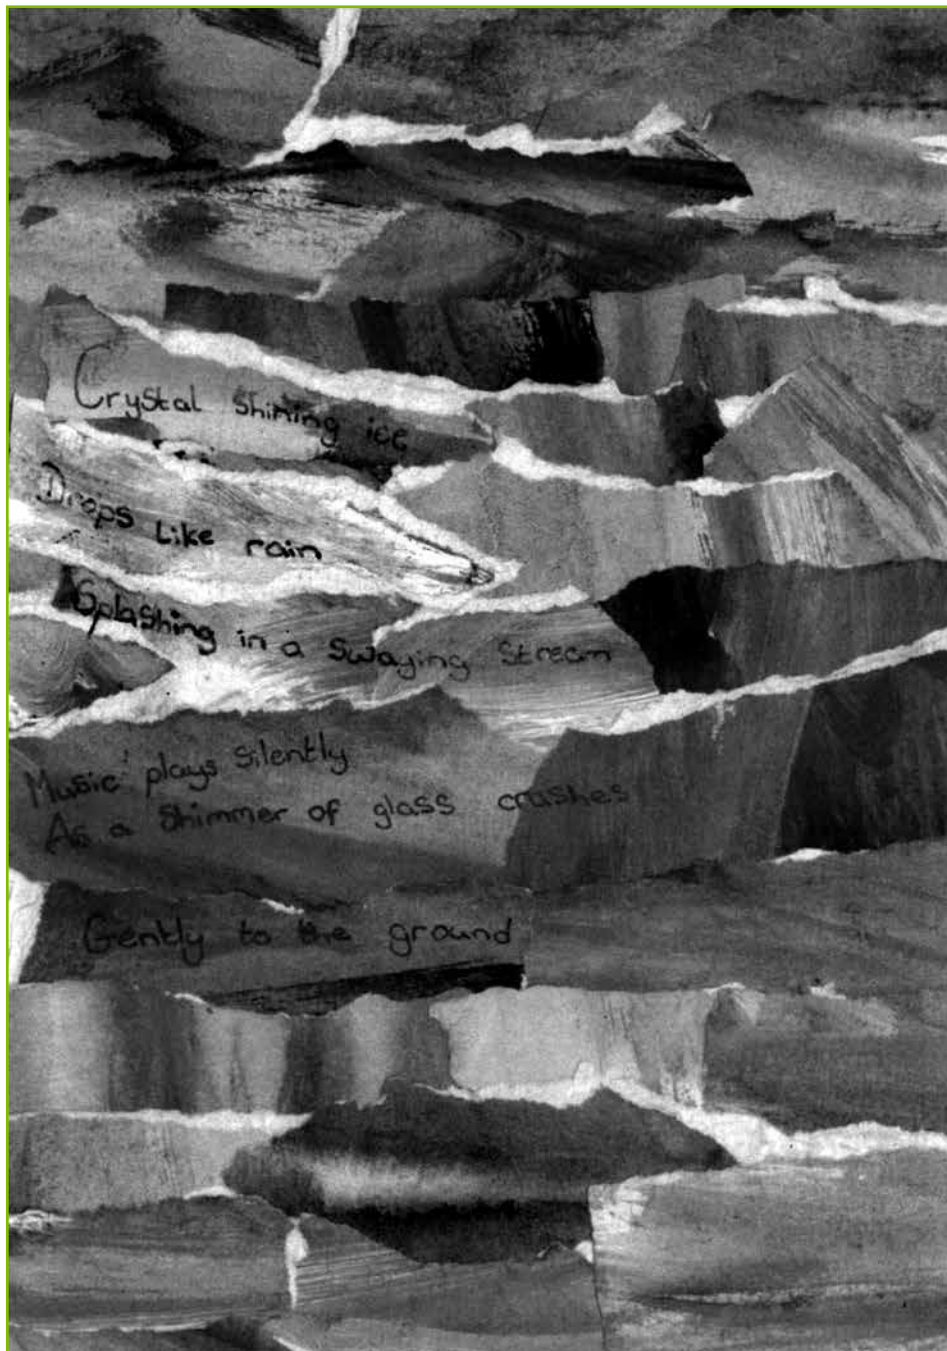 Crystal Shining ice
Drops Like rain
Splashing in a Swaying Stream
Music plays Silently
As a Shimmer of glass crashes
Gently to the ground